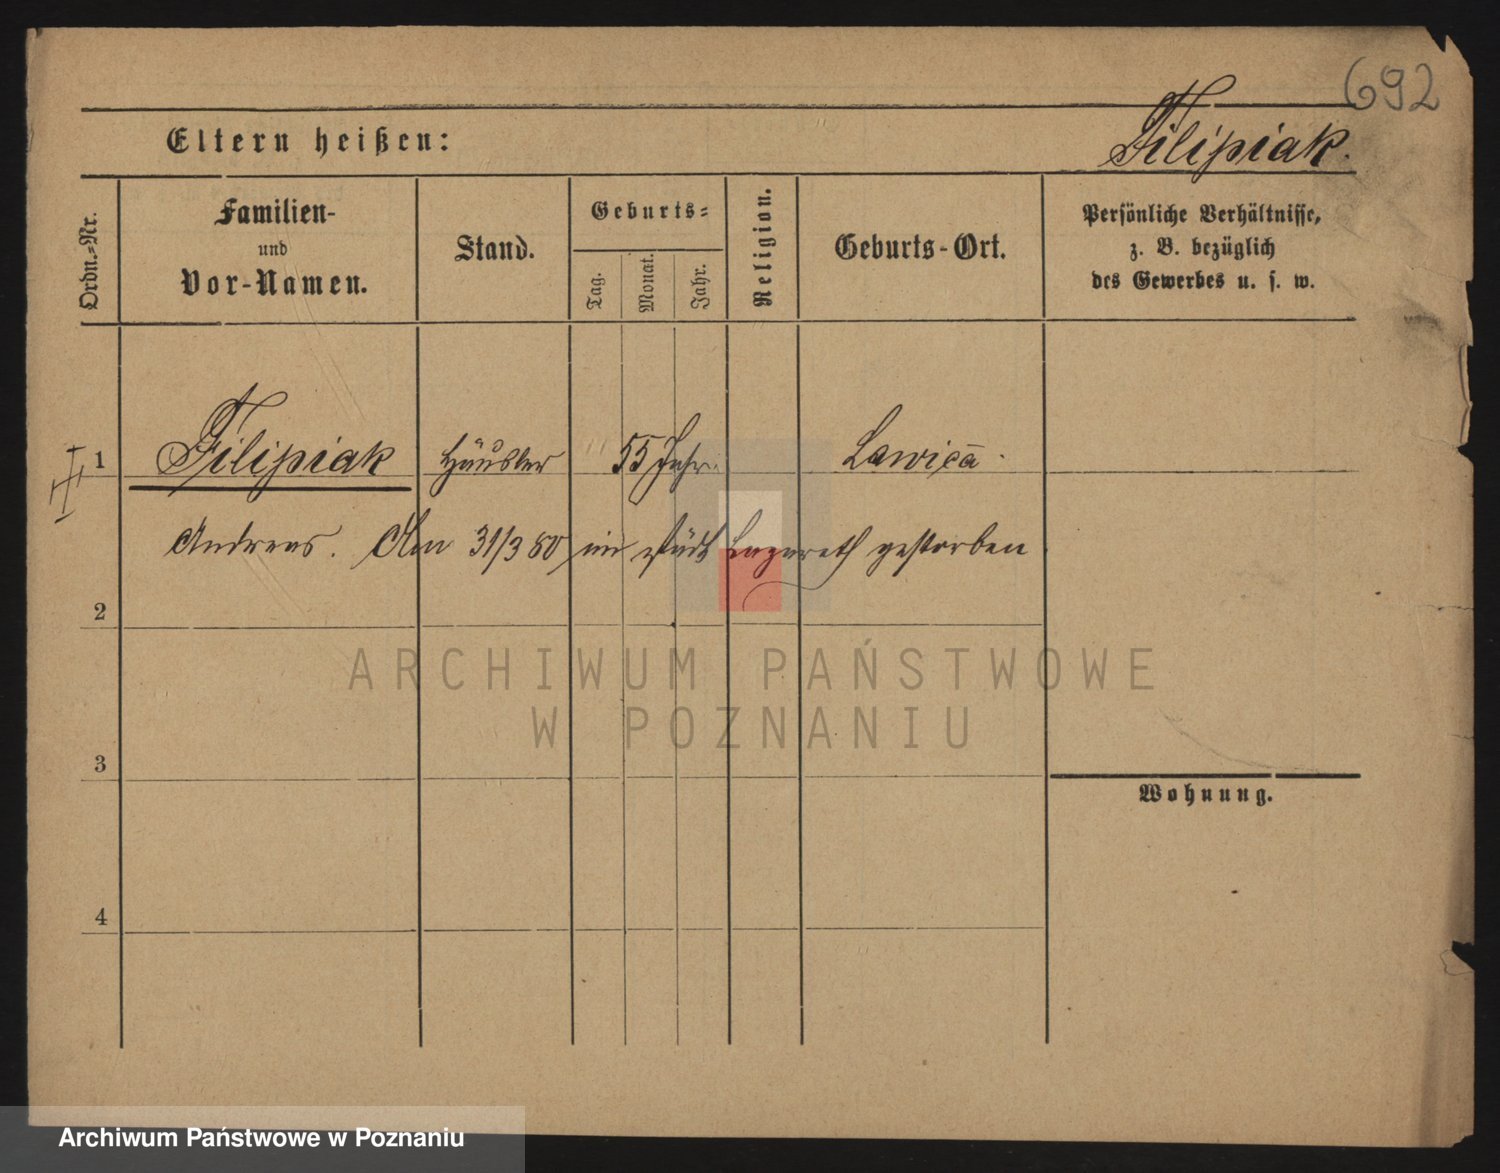 692
Eltern heißen:
Filipiak.
Ordn.-Nr.
Familien-
und
Vor-Namen.
Stand.
Geburts-
Tag.
Monat.
Jahr.
Religion.
Geburts-Ort.
Persönliche Verhältnisse,
z. B. bezüglich
des Gewerbes u. s. w.
1 Filipiak Häusler 55 Jahr Lawica
Andreas. Am 31/3 80 im städt Lazareth gestorben
2
3
4
Wohnung.
ARCHIWUM PAŃSTWOWE
W POZNANIU
Archiwum Państwowe w Poznaniu